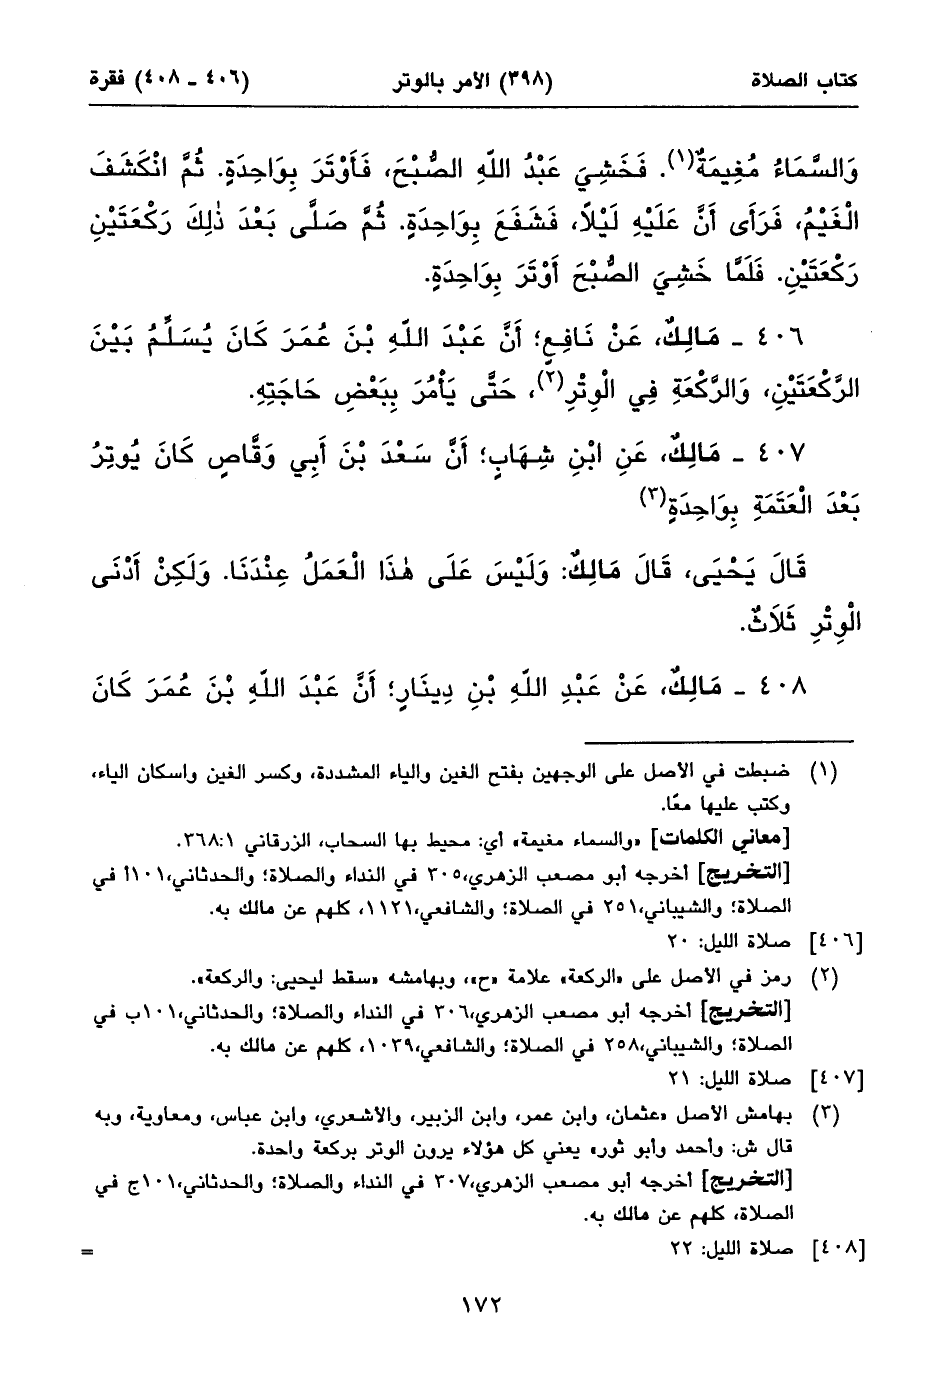 كتاب الصلاة (٣٩٨) الأمر بالوتر (٤٠٦ ـ ٤٠٨) فقرة
وَالسَّمَاءُ مُغِيمَةٌ(١). فَخَشِيَ عَبْدُ اللّهِ الصُّبْحَ، فَأَوْتَرَ بِوَاحِدَةٍ. ثُمَّ انْكَشَفَ
الْغَيْمُ، فَرَأَى أَنَّ عَلَيْهِ لَيْلاً، فَشَفَعَ بِوَاحِدَةٍ. ثُمَّ صَلَّى بَعْدَ ذٰلِكَ رَكْعَتَيْنِ
رَكْعَتَيْنِ. فَلَمَّا خَشِيَ الصُّبْحَ أَوْتَرَ بِوَاحِدَةٍ.
٤٠٦ ـ مَالِكٌ، عَنْ نَافِعٍ؛ أَنَّ عَبْدَ اللّهِ بْنَ عُمَرَ كَانَ يُسَلِّمُ بَيْنَ
الرَّكْعَتَيْنِ، وَالرَّكْعَةِ فِي الْوِتْرِ(٢)، حَتَّى يَأْمُرَ بِبَعْضِ حَاجَتِهِ.
٤٠٧ ـ مَالِكٌ، عَنِ ابْنِ شِهَابٍ؛ أَنَّ سَعْدَ بْنَ أَبِي وَقَّاصٍ كَانَ يُوتِرُ
بَعْدَ الْعَتَمَةِ بِوَاحِدَةٍ(٣)
قَالَ يَحْيَى، قَالَ مَالِكٌ: وَلَيْسَ عَلَى هٰذَا الْعَمَلُ عِنْدَنَا. وَلَكِنْ أَدْنَى
الْوِتْرِ ثَلَاثٌ.
٤٠٨ ـ مَالِكٌ، عَنْ عَبْدِ اللّهِ بْنِ دِينَارٍ؛ أَنَّ عَبْدَ اللّهِ بْنَ عُمَرَ كَانَ
(١) ضبطت في الأصل على الوجهين بفتح الغين والياء المشددة، وكسر الغين واسكان الياء،
وكتب عليها معًا.
[معاني الكلمات] «والسماء مغيمة» أي: محيط بها السحاب، الزرقاني ٣٦٨:١.
[التخريج] أخرجه أبو مصعب الزهري،٣٠٥ في النداء والصلاة؛ والحدثاني،١٠١أ في
الصلاة؛ والشيباني،٢٥١ في الصلاة؛ والشافعي،١١٢١، كلهم عن مالك به.
[٤٠٦] صلاة الليل: ٢٠
(٢) رمز في الأصل على «الركعة» علامة «ح»، وبهامشه «سقط ليحيى: والركعة».
[التخريج] أخرجه أبو مصعب الزهري،٣٠٦ في النداء والصلاة؛ والحدثاني،١٠١ب في
الصلاة؛ والشيباني،٢٥٨ في الصلاة؛ والشافعي،١٠٣٩، كلهم عن مالك به.
[٤٠٧] صلاة الليل: ٢١
(٣) بهامش الأصل «عثمان، وابن عمر، وابن الزبير، والأشعري، وابن عباس، ومعاوية، وبه
قال ش: وأحمد وأبو ثور» يعني كل هؤلاء يرون الوتر بركعة واحدة.
[التخريج] أخرجه أبو مصعب الزهري،٣٠٧ في النداء والصلاة؛ والحدثاني،١٠١ج في
الصلاة، كلهم عن مالك به.
[٤٠٨] صلاة الليل: ٢٢ =
١٧٢